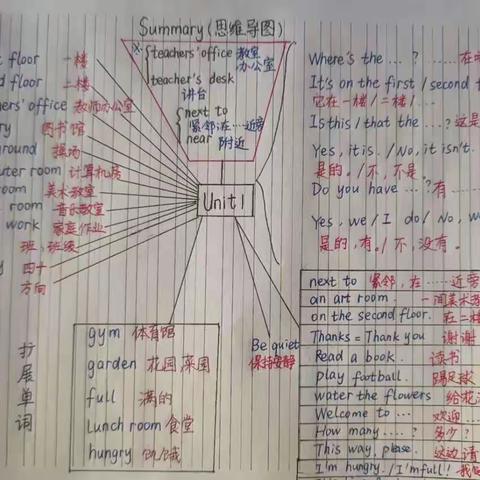 Summary (思维导图)
※ teachers' office 教室
办公室
teacher's desk
讲台
next to
紧邻;在……近旁
near 附近
floor 一楼
floor 二楼
office 教师办公室
图书馆
操场
room 计算机房
room 美术教室
room 音乐教室
work 家庭作业
班,班级
四十
方向
Unit 1
扩展单词
gym 体育馆
garden 花园 菜园
full 满的
Lunch room 食堂
hungry 饥饿
Be quiet
保持安静
Where's the ... ? ……
It's on the first / second
它在一楼/二楼/…
Is this / that the ... ? 这是
Yes, it is. / No, it isn't.
是的。/不,不是。
Do you have ... ? 有……
Yes, we / I do / No, w
是的,有。/不,没有。
next to 紧邻,在……近旁
an art room. 一间美术
on the second floor. 在二楼
Thanks = Thank you 谢谢
Read a book. 读书
play football. 踢足球
water the flowers 给花
Welcome to ... 欢迎…
How many .... ? 多少?
This way, please. 这边请
I'm hungry. / I'm full!